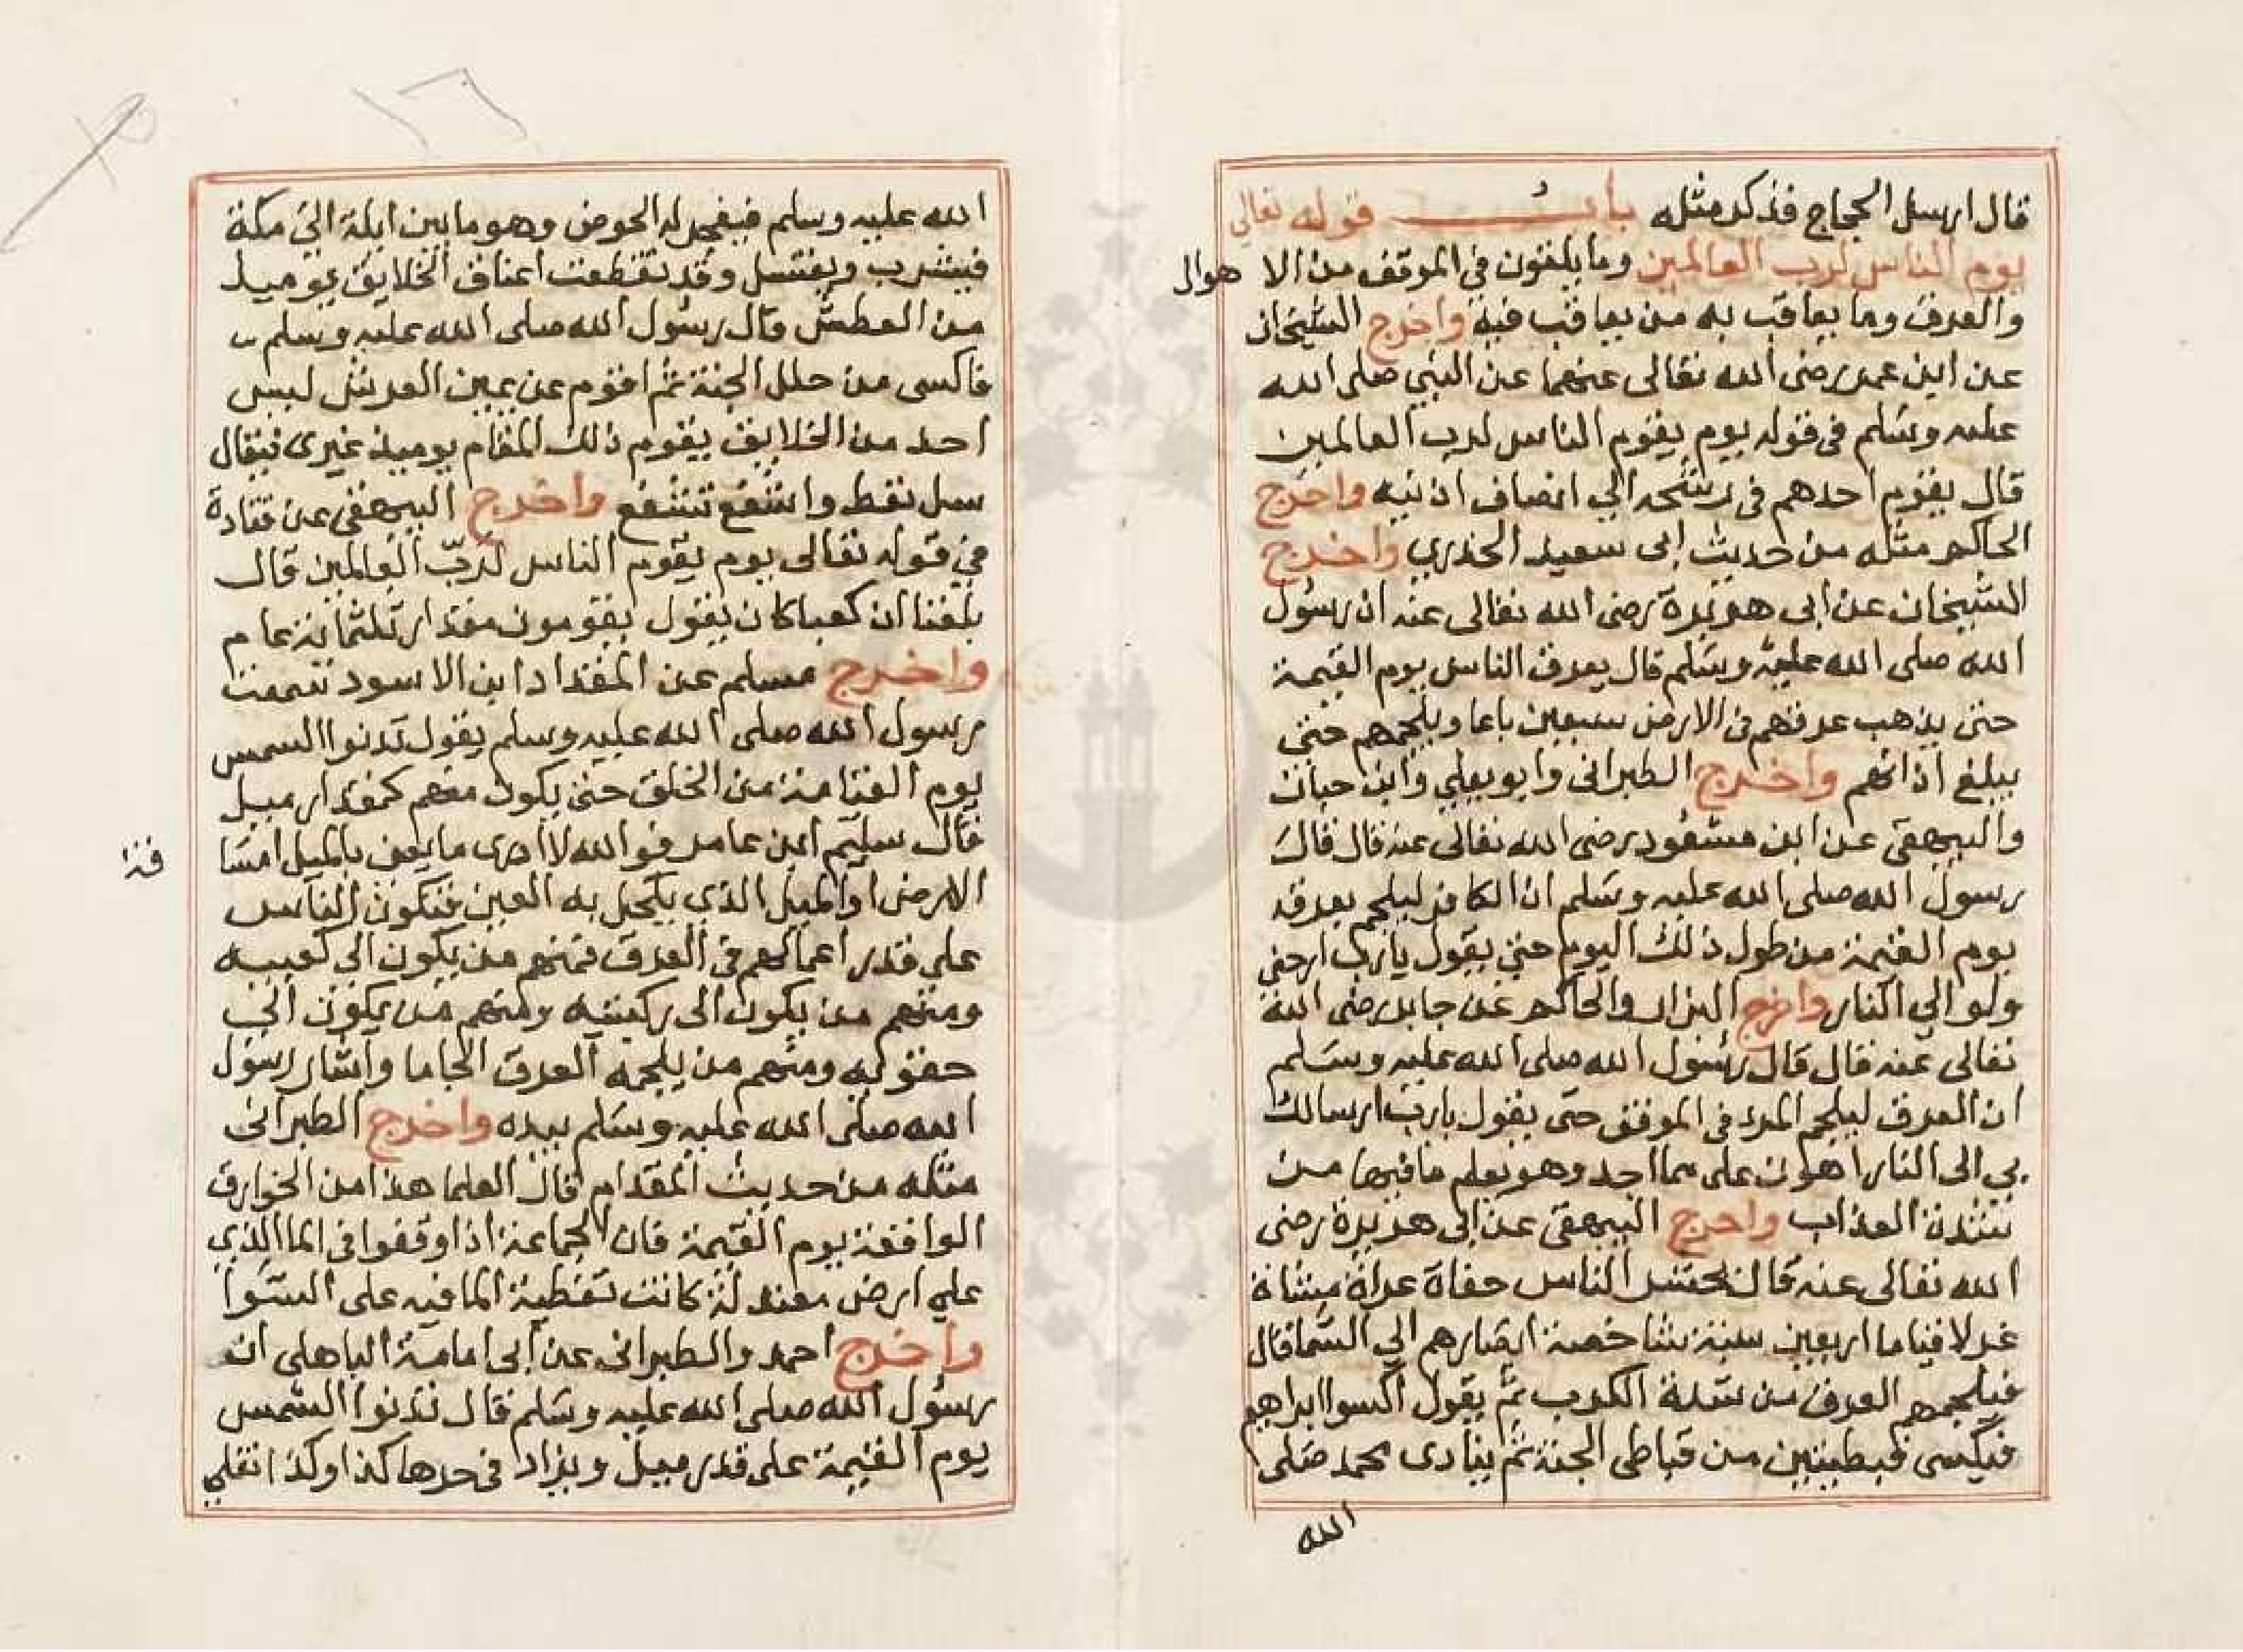 قال ارسل الحجاج فذكر مثله باب قوله تعالى
يوم الناس لرب العالمين وما يلقون في الموقف من الاهوال
والعرق وما يعاقب به من يعاقب فيه واخرج الشيخان
عن ابن عمر رضى الله تعالى عنهما عن النبي صلى الله
عليه وسلم فى قوله يوم يقوم الناس لرب العالمين
قال يقوم احدهم فى رشحه الي انصاف اذنيه واخرج
الحاكم مثله من حديث ابى سعيد الخدري واخرج
الشيخان عن ابى هريرة رضى الله تعالى عنه ان رسول
الله صلى الله عليه وسلم قال يعرق الناس يوم القيمة
حتى يذهب عرقهم فى الارض سبعين باعا ويلجمهم حتى
يبلغ اذانهم واخرج الطبرانى وابو يعلي وابن حبان
والبيهقى عن ابن مسعود رضى الله تعالى عنه قال قال
رسول الله صلى الله عليه وسلم ان الكافر ليلجم بعرقه
يوم القيمة من طول ذلك اليوم حتى يقول يا رب ارحنى
ولو الي النار واخرج البزار والحاكم عن جابر رضى الله
تعالى عنه قال قال رسول الله صلى الله عليه وسلم
ان العرق ليلجم المرء فى الموقف حتى يقول يارب ارسالك
بي الى النار اهون على مما اجد وهو يعلم ما فيها من
شدة العذاب واخرج البيهقى عن ابى هريرة رضى
الله تعالى عنه قال يحشر الناس حفاة عراة مشاة
غرلا قياما اربعين سنة شاخصة ابصارهم الي السما قال
فيلجمهم العرق من شدة الكرب ثم يقول اكسوا ابراهيم
فيكسى قبطيتين من قباطى الجنة ثم ينادى محمد صلى
الله
الله عليه وسلم فيفجر له الحوض وهو ما بين ايلة الي مكة
فيشرب ويغتسل وقد تقطعت اعناق الخلايق يوميذ
من العطش قال رسول الله صلى الله عليه وسلم
فاكسى من حلل الجنة ثم اقوم عن يمين العرش ليس
احد من الخلايق يقوم ذلك المقام يوميذ غيرى فيقال
سل تعط واشفع تشفع واخرج البيهقى عن قتادة
في قوله تعالى يوم يقوم الناس لرب العالمين قال
بلغنا ان كعبا كان يقول يقومون مقدار ثلثمائة عام
واخرج مسلم عن المقداد ابن الاسود سمعت
رسول الله صلى الله عليه وسلم يقول تدنوا الشمس
يوم القيامة من الخلق حتى يكون منهم كمقدار ميل
قال سليم ابن عامر فوالله لا ادرى ما يعنى بالميل امسا
فذا
الارض او الميل الذي يكحل به العين فتكون الناس
على قدر اعمالهم فى العرق فمنهم من يكون الى كعبيه
ومنهم من يكون الى ركبتيه ومنهم من يكون الى
حقويه ومنهم من يلجمه العرق الجاما واشار رسول
الله صلى الله عليه وسلم بيده واخرج الطبرانى
مثله من حديث المقدام قال العلما هذا من الخوارق
الواقفة يوم القيمة فان الجماعة اذا وقفوا فى الما الذي
على ارض معتدلة كانت تغطية الما فيه على السوا
واخرج احمد والطبرانى عن ابى امامة الباهلى ان
رسول الله صلى الله عليه وسلم قال تدنوا الشمس
يوم القيمة على قدر ميل ويزاد فى حرها كذا وكذا تغلي